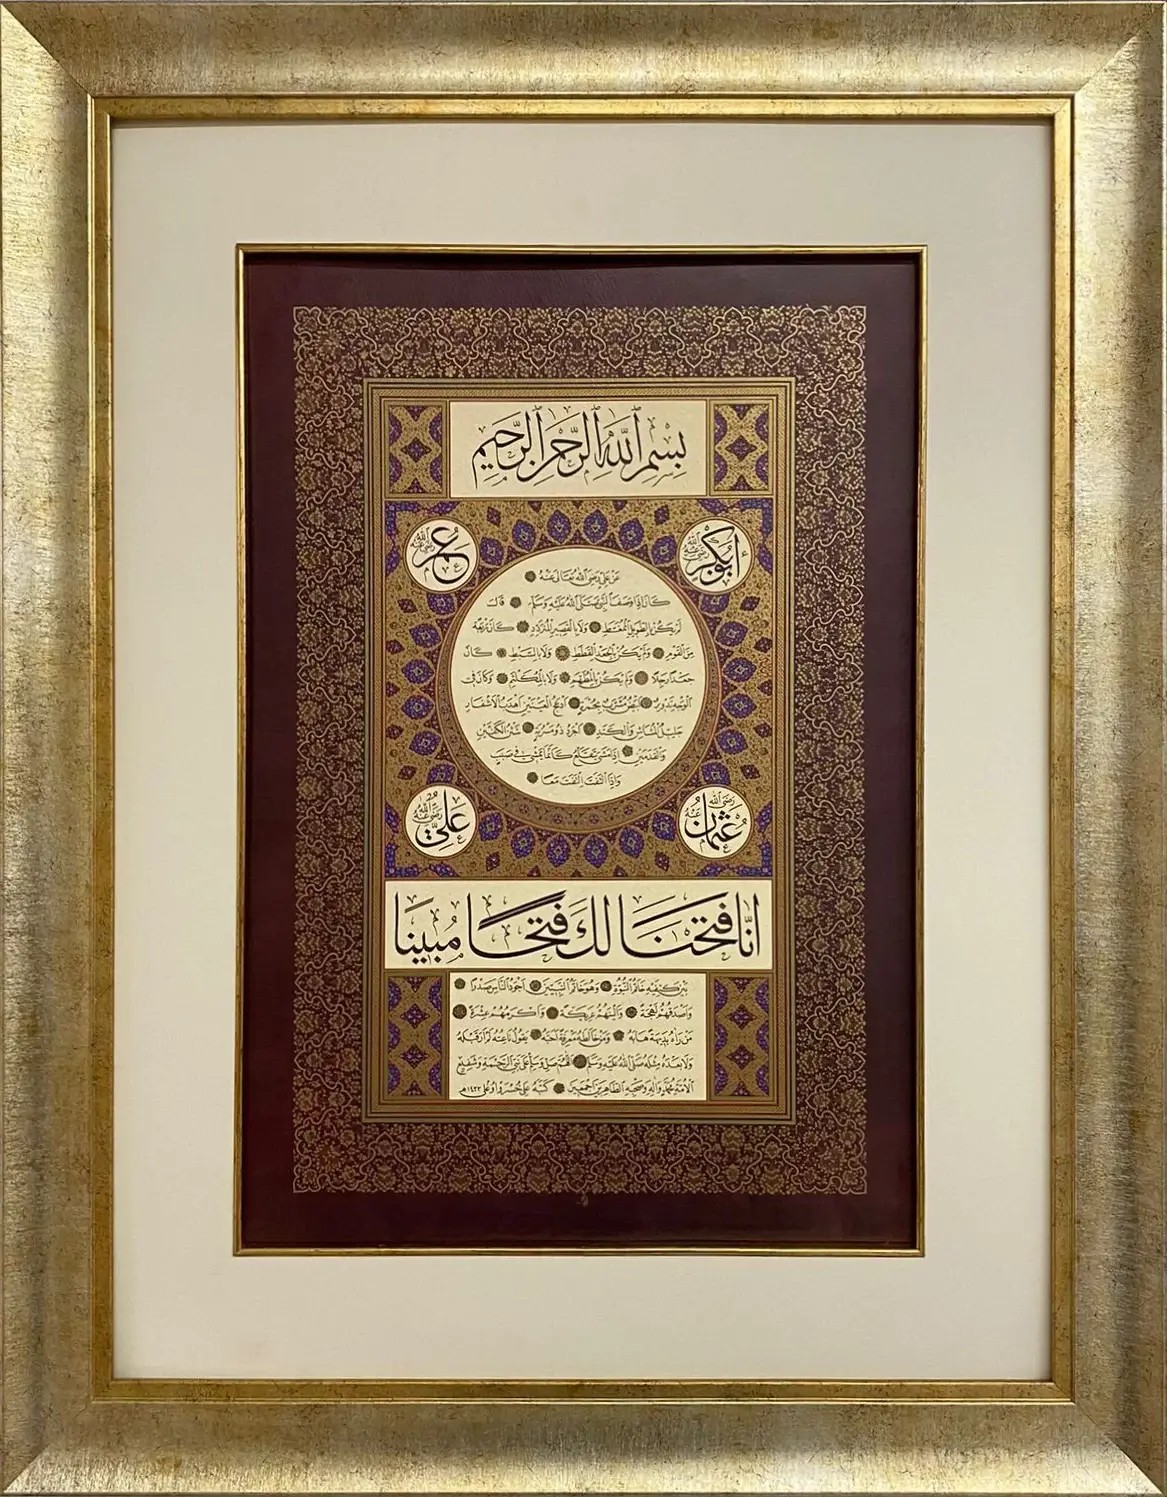 بسم الله الرحمن الرحيم
أبو بكر رضي الله عنه
عمر رضي الله عنه
عن علي رضي الله تعالى عنه
كان إذا وصف النبي صلى الله عليه وسلم قال
لم يكن بالطويل الممغط ولا بالقصير المتردد كان ربعة
من القوم ولم يكن بالجعد القطط ولا بالسبط كان
جعدا رجلا ولم يكن بالمطهم ولا بالمكلثم وكان في
الوجه تدوير أبيض مشرب بحمرة أدعج العينين أهدب الأشفار
جليل المشاش والكتد أجرد ذو مسربة شثن الكفين
والقدمين إذا مشى تقلع كأنما يمشي في صبب
وإذا التفت التفت معا
عثمان رضي الله عنه
علي رضي الله عنه
إنا فتحنا لك فتحا مبينا
بين كتفيه خاتم النبوة وهو خاتم النبيين أجود الناس صدرا
وأصدقهم لهجة وألينهم عريكة وأكرمهم عشرة
من رآه بديهة هابه ومن خالطه معرفة أحبه يقول ناعته لم أر قبله
ولا بعده مثله صلى الله عليه وسلم اللهم صل وسلم على نبي الرحمة وشفيع
الأمة محمد وآله وصحبه الطاهرين أجمعين كتبه علي خسرو اوغلي ١٤٢٢هـ